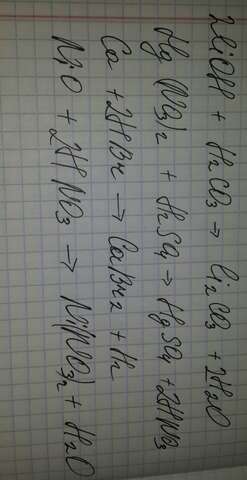 2LiOH + H₂CO₃ → Li₂CO₃ + 2H₂O
Hg(NO₃)₂ + H₂SO₄ → HgSO₄ + 2HNO₃
Ca + 2HBr → CaBr₂ + H₂
NiO + 2HNO₃ → Ni(NO₃)₂ + H₂O